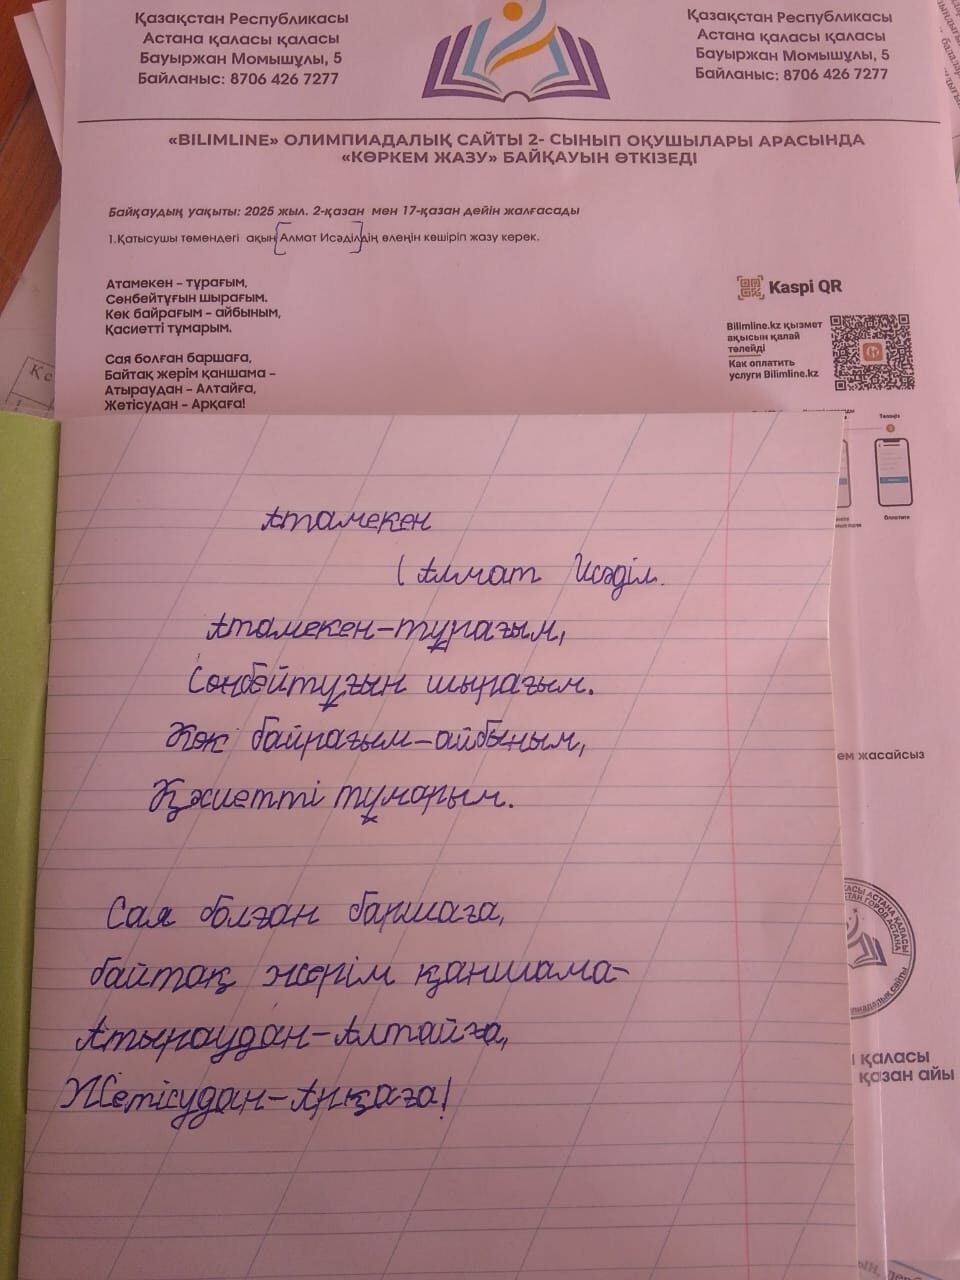 Қазақстан Республикасы
Астана қаласы қаласы
Бауыржан Момышұлы, 5
Байланыс: 8706 426 7277
Қазақстан Республикасы
Астана қаласы қаласы
Бауыржан Момышұлы, 5
Байланыс: 8706 426 7277
«BILIMLINE» ОЛИМПИАДАЛЫҚ САЙТЫ 2- СЫНЫП ОҚУШЫЛАРЫ АРАСЫНДА
«КӨРКЕМ ЖАЗУ» БАЙҚАУЫН ӨТКІЗЕДІ
Байқаудың уақыты: 2025 жыл. 2-қазан мен 17-қазан дейін жалғасады
1.Қатысушы төмендегі ақын [Алмат Исәділ]дің өлеңін көшіріп жазу керек.
Атамекен – тұрағым,
Сөнбейтұғын шырағым.
Көк байрағым – айбыным,
Қасиетті тұмарым.
Сая болған баршаға,
Байтақ жерім қаншама –
Атыраудан – Алтайға,
Жетісудан – Арқаға!
Kaspi QR
Bilimline.kz қызмет
ақысын қалай
төлейді
Как оплатить
услуги Bilimline.kz
Төлеңіз
Оплатите
Атамекен
(Алмат Исәділ.
Атамекен-тұрағым,
Сөнбейтұғын шырағым.
Көк байрағым-айбыным,
Қасиетті тұмарым.
Сая болған баршаға,
байтақ жерім қаншама-
Атыраудан-Алтайға,
Жетісудан-Арқаға!
ем жасайсыз
қаласы
қазан айы